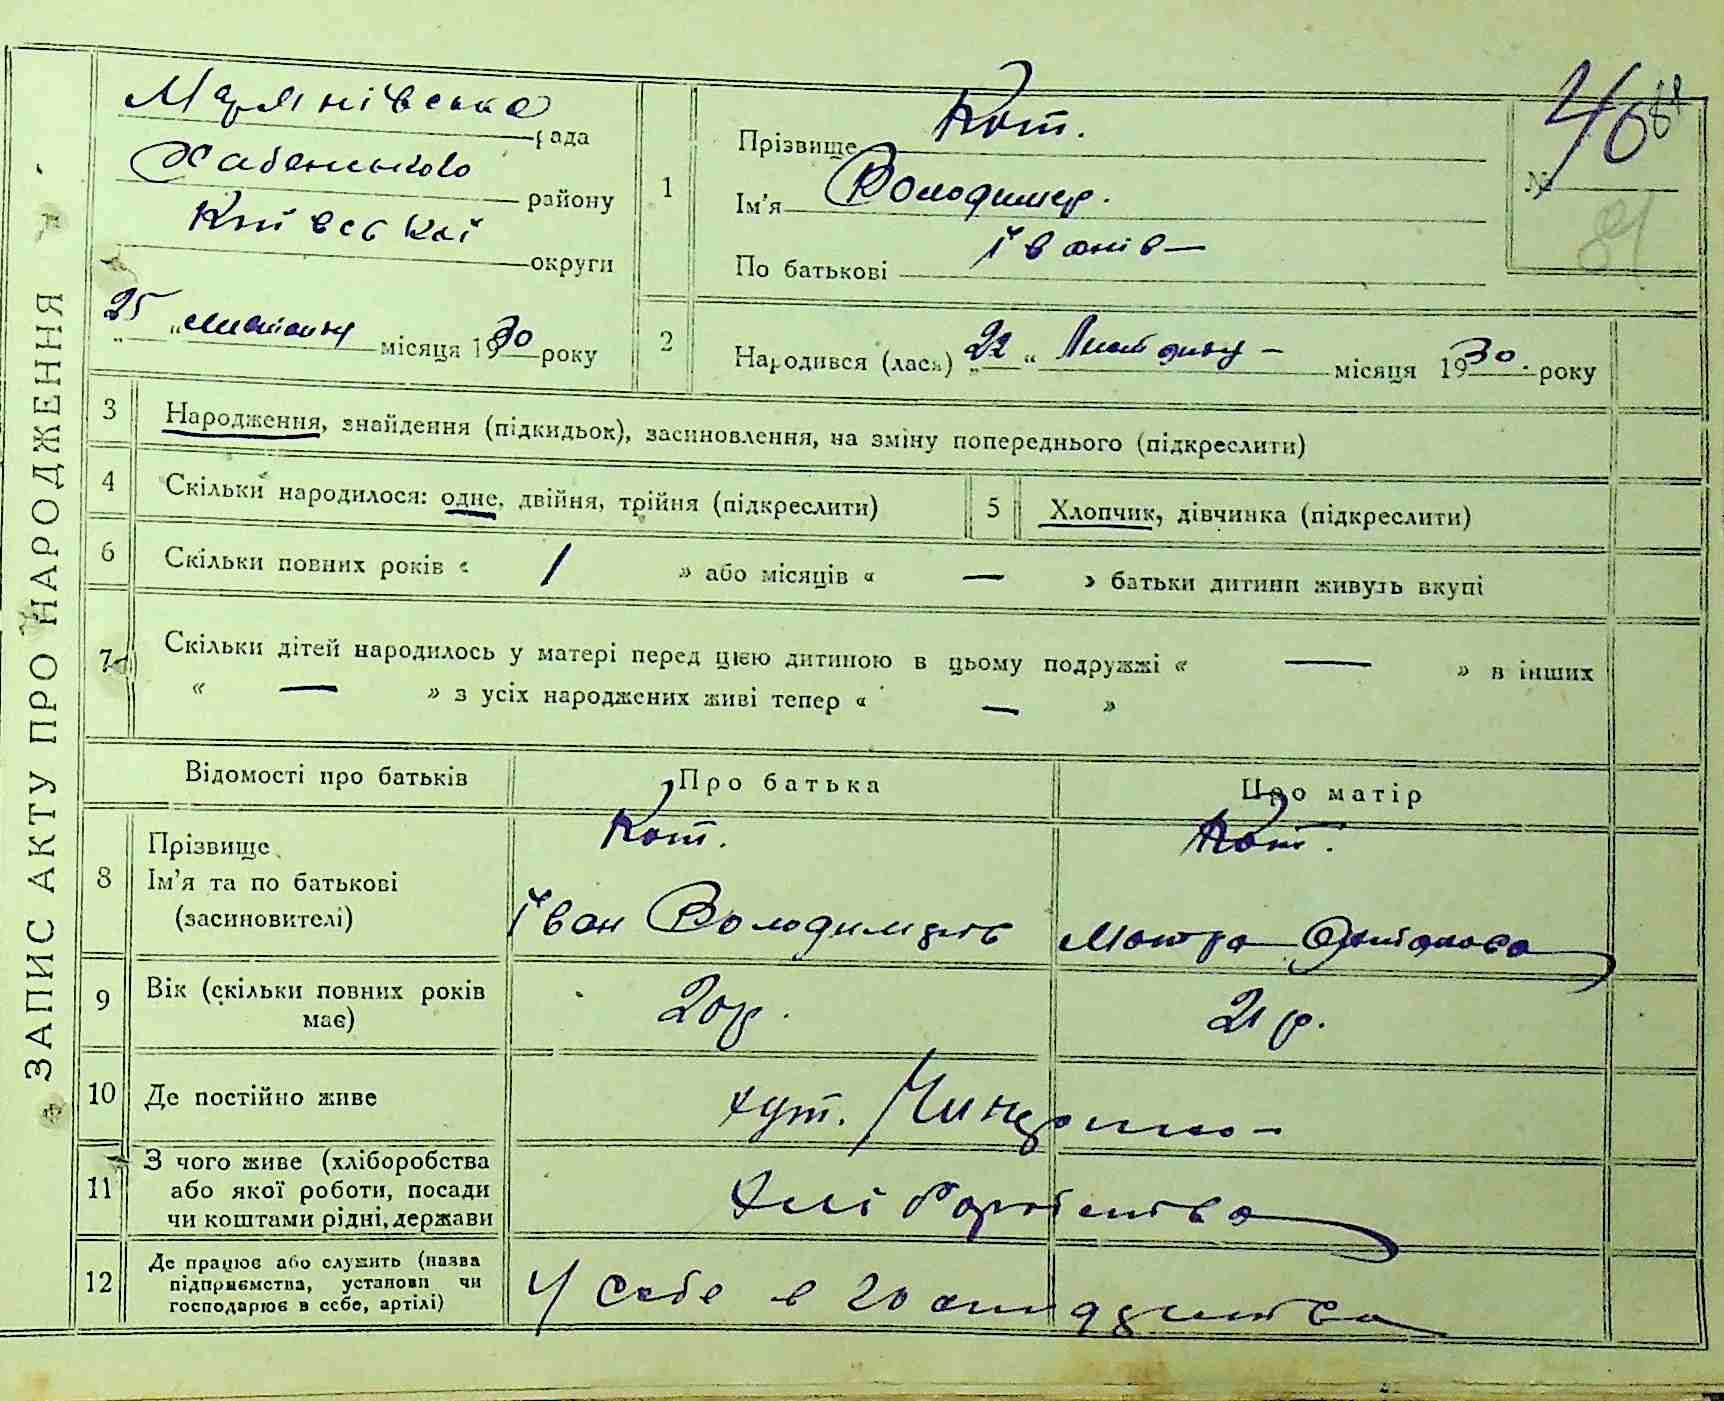 ЗАПИС АКТУ ПРО НАРОДЖЕННЯ
Мар'янівська рада
Хабенського району
Київської округи
25 „ листопаду місяця 1930 року
1 Прізвище Кот.
Ім'я Володимир.
По батькові Іванів
№ 46
81
2 Народився (лася) „22“ Листопаду місяця 1930. року
3 Народження, знайдення (підкидьок), засиновлення, на зміну попереднього (підкреслити)
4 Скільки народилося: одне, двійня, трійня (підкреслити)
5 Хлопчик, дівчинка (підкреслити)
6 Скільки повних років « 1 » або місяців « — » батьки дитини живуть вкупі
7 Скільки дітей народилось у матері перед цією дитиною в цьому подружжі « — » в інших
« — » з усіх народжених живі тепер « — »
Відомості про батьків Про батька Про матір
8 Прізвище Кот. Кот.
Ім'я та по батькові
(засиновителі) Іван Володимирів Мотря
9 Вік (скільки повних років має) 20 р. 21 р.
10 Де постійно живе хут.
11 З чого живе (хліборобства
або якої роботи, посади
чи коштами рідні, держави Хліборобства
12 Де працює або служить (назва
підприємства, установи чи
господарює в себе, артілі) У себе в господарства